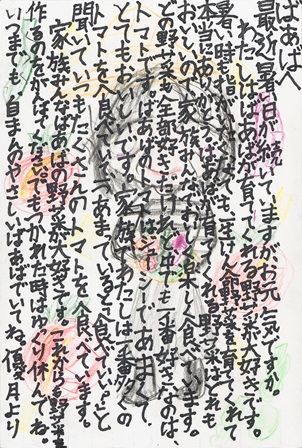 ばあばへ
最近暑い日が続いていますがお元気ですか。
わたしはばあばが育ててくれる野菜が大好きです。
暑い時も
野菜を育ててくれて
本当にありがとう。ばあばが育てくれる野菜はどれも
おいしいので家族みんなで楽しく食べています。
どの野菜も全部好きだけど、中でも一番好きなのは、
トマトです。ばあばのトマトはジューシーであまくて、
とてもおいしいです。家族で、わたしは一番多くの
トマトを食べているよ。「あまっているとこ食べていい。」と
聞いて、いつもたくさんのトマトを食べています。
家族みんなばあばの野菜が大好きです。これからも野菜
作るのをがんばって下さい。でもつかれた時はゆっくり休んでね。
いつまでも自まんのやさしいばあばでいてね。優月より